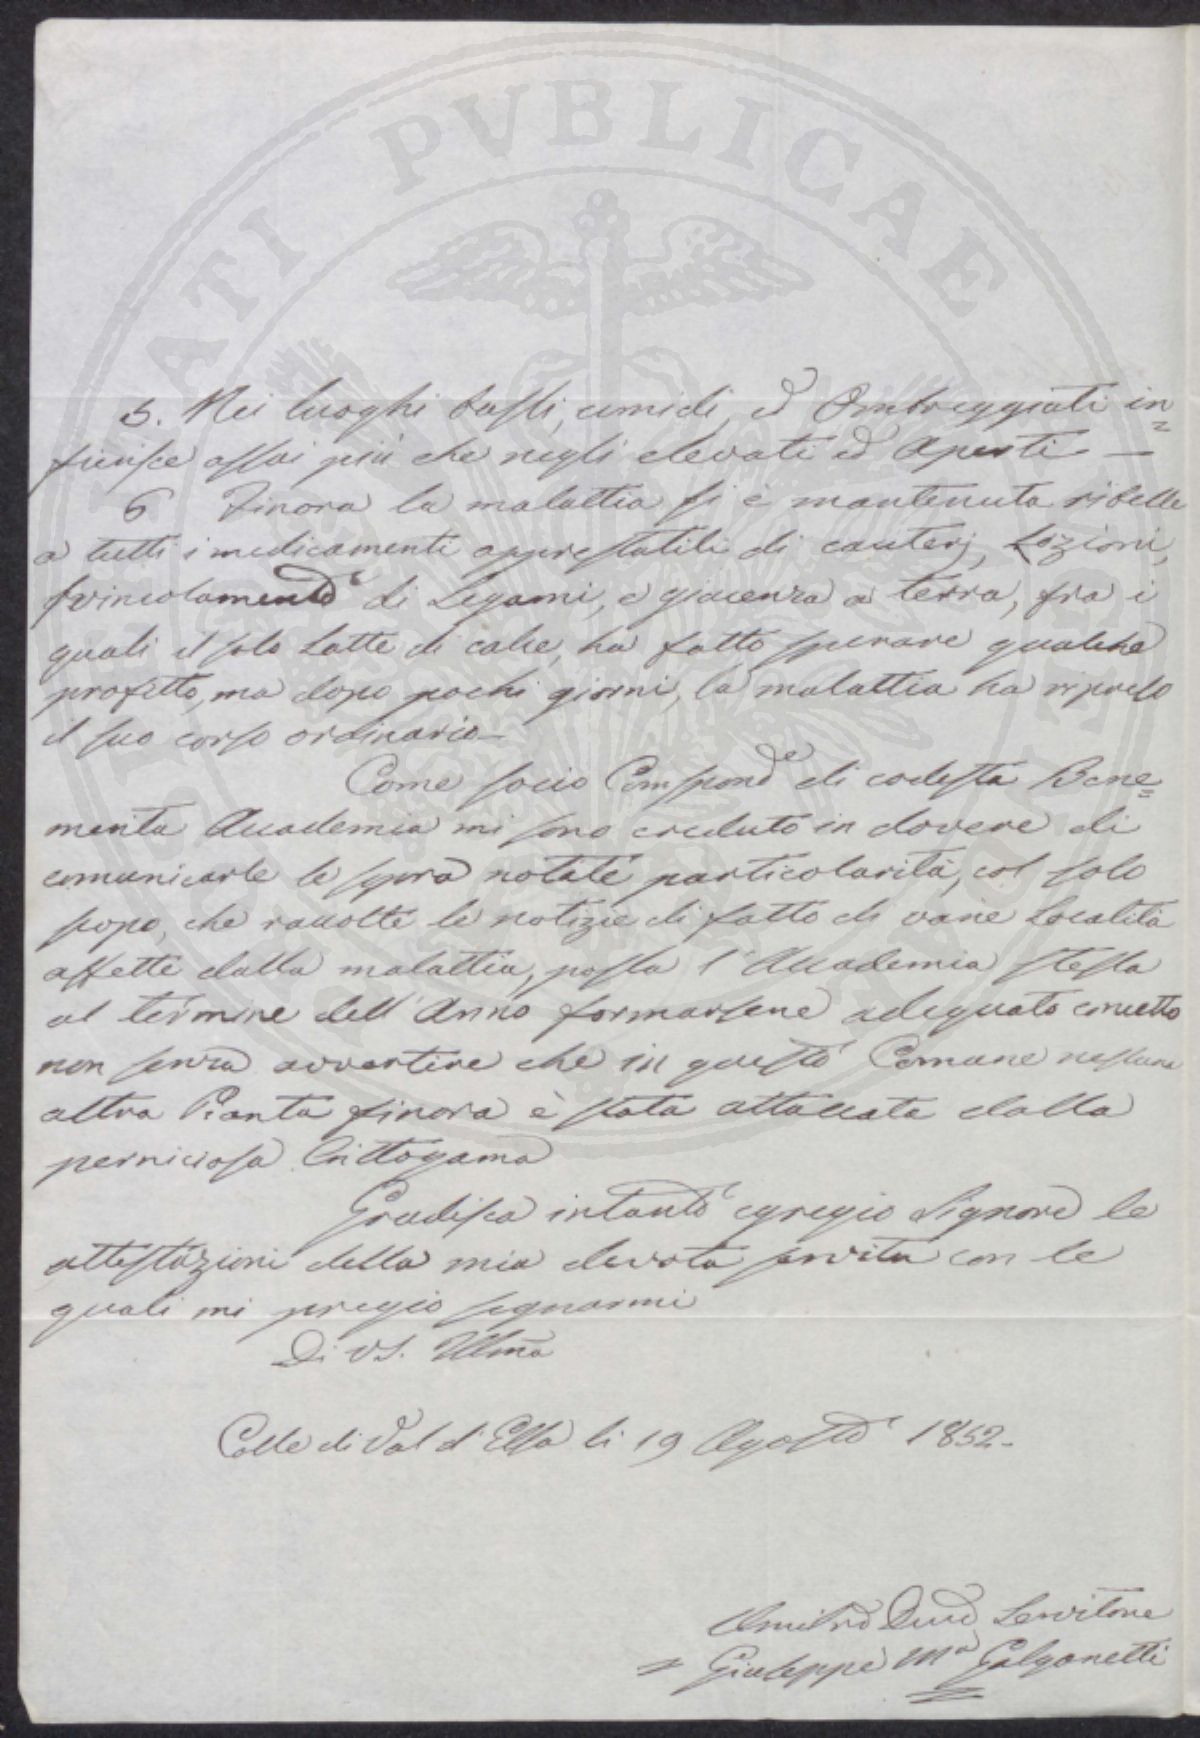 PVBLICAE
5. Nei luoghi bassi, umidi, ed Ombreggiati in=
fierisce assai più che negli elevati ed Aperti —
6 Finora la malattia si è mantenuta ribelle
a tutti i medicamenti apprestatili di cauterj, Lozioni,
svincolamento di Legami, e giacenza a terra, fra i
quali il solo Latte di calce, ha fatto sperare qualche
profitto, ma dopo pochi giorni, la malattia ha ripreso
il suo corso ordinario —
Come socio Corrispond.e di codesta Bene=
merita Accademia mi sono creduto in dovere di
comunicarle le sopra notate particolarità, col solo
scopo, che raccolte le notizie di fatto di varie Località
affette dalla malattia, possa l'Accademia stessa
al termine dell'Anno formarsene adeguato concetto
non senza avvertire che in questo Comune nessuna
altra Pianta finora è stata attaccata dalla
perniciosa Crittogama
Gradisca intanto egregio Signore le
attestazioni della mia devota servitù con le
quali mi pregio segnarmi
Di VS. Illma
Colle di Val d'Elsa li 19 Agosto 1852 -
Servitore
= Giuseppe Ma Galganetti